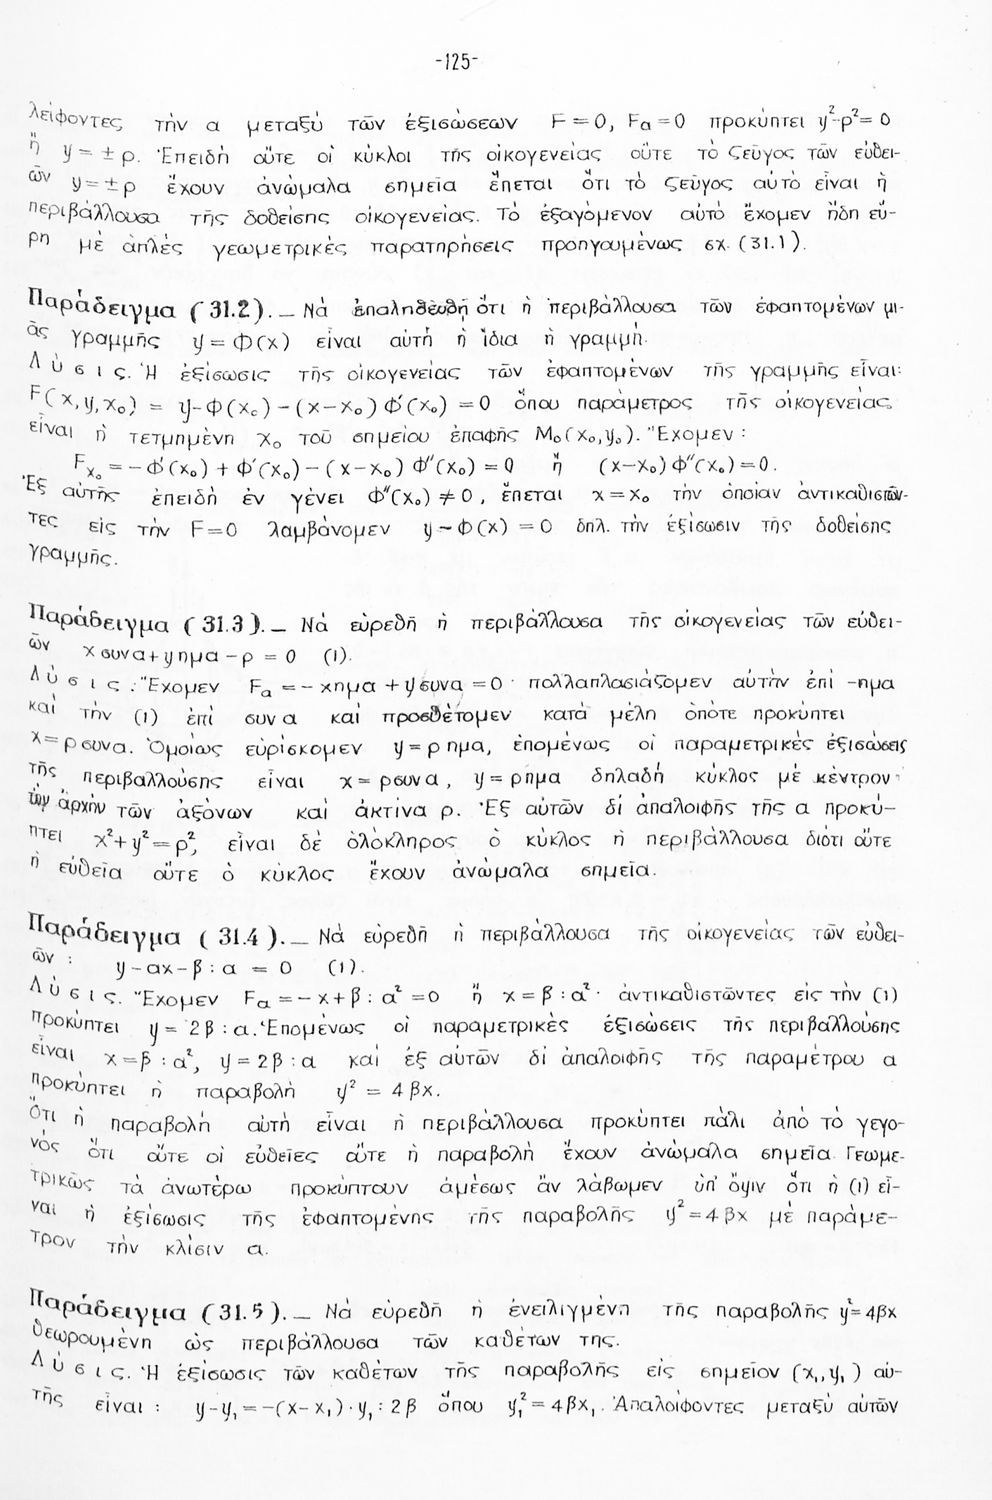 -125-
λείφοντες τήν α μεταξύ τῶν ἐξισώσεων F = 0, Fα = 0 προκύπτει y²-ρ² = 0
ἤ y = ± ρ. Ἐπειδή οὔτε οἱ κύκλοι τῆς οἰκογενείας οὔτε τό ζεῦγος τῶν εὐθει-
ῶν y = ± ρ ἔχουν ἀνώμαλα σημεῖα ἔπεται ὅτι τό ζεῦγος αὐτό εἶναι ἡ
περιβάλλουσα τῆς δοθείσης οἰκογενείας. Τό ἐξαγόμενον αὐτό ἔχομεν ἤδη εὕ-
ρη μέ ἁπλές γεωμετρικές παρατηρήσεις προηγουμένως σχ. (31.1).
Παράδειγμα (31.2).— Νά ἐπαληθευθῇ ὅτι ἡ περιβάλλουσα τῶν ἐφαπτομένων μι-
ᾶς γραμμῆς y = Φ(x) εἶναι αὐτή ἡ ἴδια ἡ γραμμή.
Λύσις. Ἡ ἐξίσωσις τῆς οἰκογενείας τῶν ἐφαπτομένων τῆς γραμμῆς εἶναι:
F(x,y,x₀) = y-Φ(x₀)-(x-x₀)Φ'(x₀) = 0 ὅπου παράμετρος τῆς οἰκογενείας
εἶναι ἡ τετμημένη x₀ τοῦ σημείου ἐπαφῆς M₀(x₀,y₀). Ἔχομεν:
Fx₀ = -Φ'(x₀)+Φ'(x₀)-(x-x₀)Φ''(x₀) = 0 ἤ (x-x₀)Φ''(x₀) = 0.
Ἐξ αὐτῆς ἐπειδή ἐν γένει Φ''(x₀) ≠ 0, ἔπεται x = x₀ τήν ὁποίαν ἀντικαθιστῶν-
τες εἰς τήν F=0 λαμβάνομεν y-Φ(x) = 0 δηλ. τήν ἐξίσωσιν τῆς δοθείσης
γραμμῆς.
Παράδειγμα (31.3).— Νά εὑρεθῇ ἡ περιβάλλουσα τῆς οἰκογενείας τῶν εὐθει-
ῶν xσυνα+yημα-ρ = 0 (1).
Λύσις: Ἔχομεν Fα = -xημα+yσυνα = 0· πολλαπλασιάζομεν αὐτήν ἐπί -ημα
καί τήν (1) ἐπί συνα καί προσθέτομεν κατά μέλη ὁπότε προκύπτει
x=ρσυνα. Ὁμοίως εὑρίσκομεν y=ρημα, ἑπομένως οἱ παραμετρικές ἐξισώσεις
τῆς περιβαλλούσης εἶναι x=ρσυνα, y=ρημα δηλαδή κύκλος μέ κέντρον
τήν ἀρχήν τῶν ἀξόνων καί ἀκτίνα ρ. Ἐξ αὐτῶν δι' ἀπαλοιφῆς τῆς α προκύ-
πτει x²+y²=ρ², εἶναι δέ ὁλόκληρος ὁ κύκλος ἡ περιβάλλουσα διότι οὔτε
ἡ εὐθεῖα οὔτε ὁ κύκλος ἔχουν ἀνώμαλα σημεῖα.
Παράδειγμα (31.4).— Νά εὑρεθῇ ἡ περιβάλλουσα τῆς οἰκογενείας τῶν εὐθει-
ῶν: y-αx-β:α = 0 (1).
Λύσις. Ἔχομεν Fα = -x+β:α² = 0 ἤ x = β:α²· ἀντικαθιστῶντες εἰς τήν (1)
προκύπτει y = 2β:α. Ἑπομένως οἱ παραμετρικές ἐξισώσεις τῆς περιβαλλούσης
εἶναι x = β:α², y = 2β:α καί ἐξ αὐτῶν δι' ἀπαλοιφῆς τῆς παραμέτρου α
προκύπτει ἡ παραβολή y² = 4βx.
Ὅτι ἡ παραβολή αὐτή εἶναι ἡ περιβάλλουσα προκύπτει πάλι ἀπό τό γεγο-
νός ὅτι οὔτε οἱ εὐθεῖες οὔτε ἡ παραβολή ἔχουν ἀνώμαλα σημεῖα. Γεωμε-
τρικῶς τά ἀνωτέρω προκύπτουν ἀμέσως ἄν λάβωμεν ὑπ' ὄψιν ὅτι ἡ (1) εἶ-
ναι ἡ ἐξίσωσις τῆς ἐφαπτομένης τῆς παραβολῆς y² = 4βx μέ παράμε-
τρον τήν κλίσιν α.
Παράδειγμα (31.5).— Νά εὑρεθῇ ἡ ἐνειλιγμένη τῆς παραβολῆς y²=4βx
θεωρουμένη ὡς περιβάλλουσα τῶν καθέτων της.
Λύσις. Ἡ ἐξίσωσις τῶν καθέτων τῆς παραβολῆς εἰς σημεῖον (x₁,y₁) αὐ-
τῆς εἶναι: y-y₁ = -(x-x₁)·y₁:2β ὅπου y₁² = 4βx₁. Ἀπαλοίφοντες μεταξύ αὐτῶν